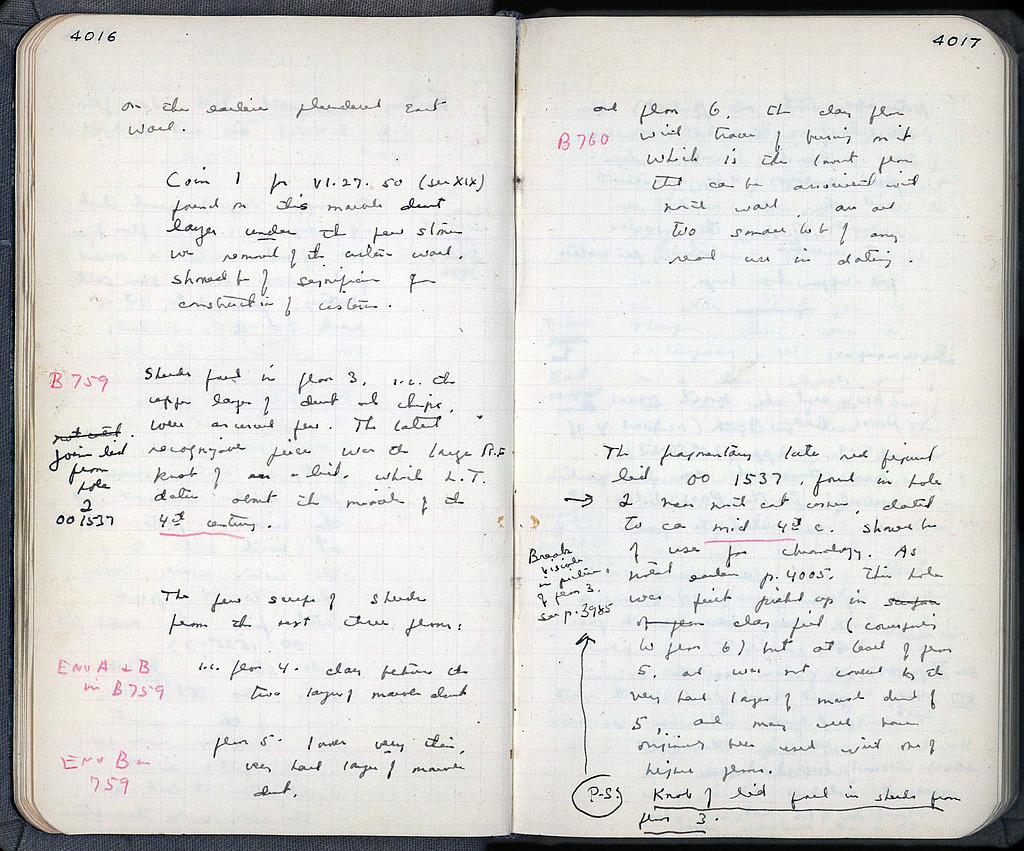 4016
on the earlier plundered East
wall.
Coin 1 for VI.27.50 (see XIX)
found on this marble dust
layer under the few stones
we removed of the cistern wall.
should be of significance for
construction of cistern.
B 759
Sherds found in floor 3, i.e. the
upper layer of dust and chips,
were several few. The latest
recognizable piece was the large R.F.
knob of a lid, which L.T.
dates about the middle of the
4th century.
join lid
from
hole
2
001537
The few scraps of sherds
from the next three floors:
Env A + B
in B 759
i.e. floor 4. clay between the
two layers of marble dust
Env B in
759
floor 5. lower very thin,
very hard layer of marble
dust.
4017
and floor 6, the clay floor
B 760
with traces of burning on it
which is the lowest floor
that can be associated with
north wall, are all
too small lots of any
real use in dating.
The fragmentary late red figured
lid 00 1537, found in hole
→ 2 near north east corner, dated
to ca mid 4th c. should be
of use for chronology. As
noted earlier p. 4005. This hole
was first picked up in surface
of floor clay fill (corresponds
to floor 6) but at level of floor
5, and was not covered by the
very hard layer of marble dust of
5, and may well have
originally been used with one of
higher floors.
Break
visible
in section
of floor 3.
see p. 3985
P.S.
Knob of lid found in sherds from
floor 3.